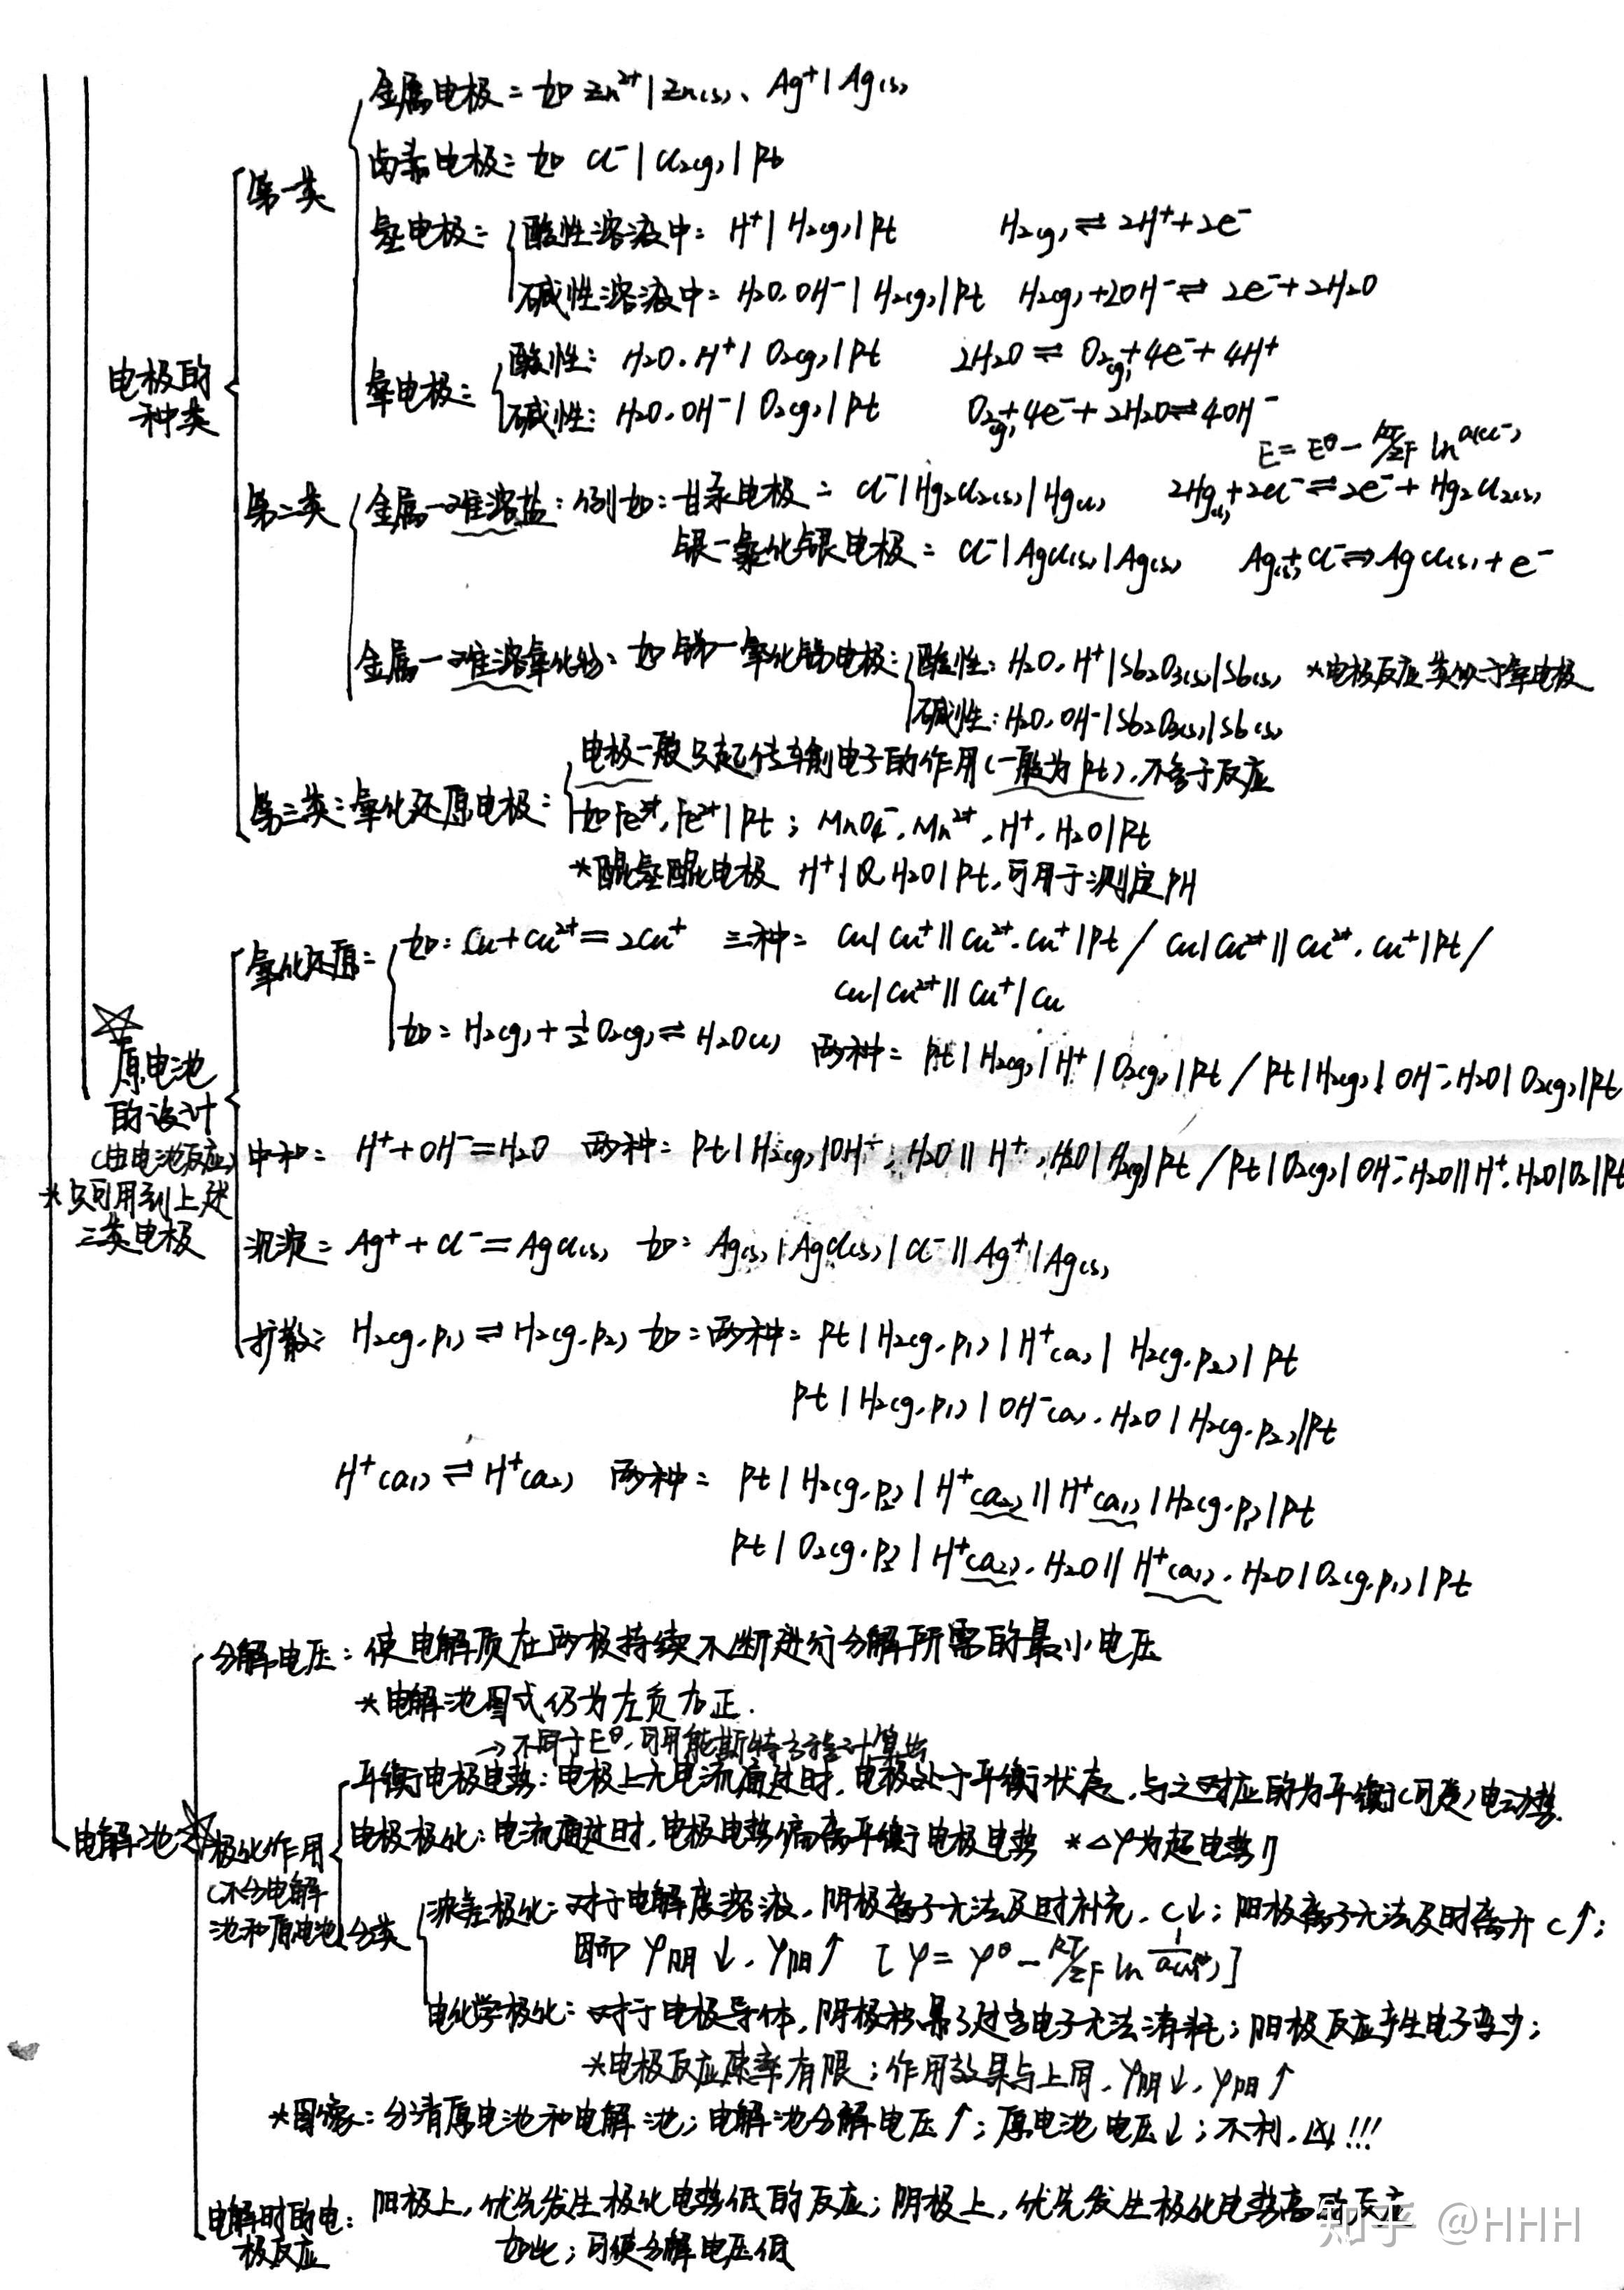 金属电极：如 Zn²⁺|Zn(s)、Ag⁺|Ag(s)
卤素电极：如 Cl⁻|Cl₂(g)|Pt
第一类
氢电极： 酸性溶液中：H⁺|H₂(g)|Pt H₂(g)⇌2H⁺+2e⁻
碱性溶液中：H₂O,OH⁻|H₂(g)|Pt H₂(g)+2OH⁻⇌2e⁻+2H₂O
酸性：H₂O,H⁺|O₂(g)|Pt 2H₂O⇌O₂(g)+4e⁻+4H⁺
电极的种类
氧电极：
碱性：H₂O,OH⁻|O₂(g)|Pt O₂(g)+4e⁻+2H₂O⇌4OH⁻
E=E^θ-RT/zF ln a(Cl⁻)
第二类 金属-难溶盐：例如：甘汞电极：Cl⁻|Hg₂Cl₂(s)|Hg(l) 2Hg(l)+2Cl⁻⇌2e⁻+Hg₂Cl₂(s)
银-氯化银电极：Cl⁻|AgCl(s)|Ag(s) Ag(s)+Cl⁻⇌AgCl(s)+e⁻
金属-难溶氧化物：如锑-氧化锑电极： 酸性：H₂O,H⁺|Sb₂O₃(s)|Sb(s) *电极反应类似于氧电极
碱性：H₂O,OH⁻|Sb₂O₃(s)|Sb(s)
电极一般只起传输电子的作用(一般为Pt),不参于反应
第三类：氧化还原电极：
如Fe³⁺,Fe²⁺|Pt；MnO₄⁻,Mn²⁺,H⁺,H₂O|Pt
*醌氢醌电极 H⁺|Q,H₂O|Pt,可用于测定pH
氧化还原： 如：Cu+Cu²⁺=2Cu⁺ 三种：Cu|Cu⁺||Cu²⁺,Cu⁺|Pt / Cu|Cu²⁺||Cu²⁺,Cu⁺|Pt /
Cu|Cu²⁺||Cu⁺|Cu
如：H₂(g)+½O₂(g)⇌H₂O(l) 两种：Pt|H₂(g)|H⁺|O₂(g)|Pt / Pt|H₂(g)|OH⁻,H₂O|O₂(g)|Pt
☆
原电池
的设计
(由电池反应)
*只可用到上述
三类电极
中和：H⁺+OH⁻=H₂O 两种：Pt|H₂(g)|OH⁻,H₂O||H⁺,H₂O|H₂(g)|Pt / Pt|O₂(g)|OH⁻,H₂O||H⁺,H₂O|O₂|Pt
沉淀：Ag⁺+Cl⁻=AgCl(s) 如：Ag(s)|AgCl(s)|Cl⁻||Ag⁺|Ag(s)
扩散：H₂(g,p₁)⇌H₂(g,p₂) 如：两种：Pt|H₂(g,p₁)|H⁺(a)|H₂(g,p₂)|Pt
Pt|H₂(g,p₁)|OH⁻(a),H₂O|H₂(g,p₂)|Pt
H⁺(a₁)⇌H⁺(a₂) 两种：Pt|H₂(g,p₂)|H⁺(a₂)||H⁺(a₁)|H₂(g,p₁)|Pt
Pt|O₂(g,p₂)|H⁺(a₂),H₂O||H⁺(a₁),H₂O|O₂(g,p₁)|Pt
分解电压：使电解质在两极持续不断进行分解所需的最小电压
*电解池图式仍为左负右正.
→不同于E^θ,可用能斯特方程计算出
平衡电极电势：电极上无电流通过时,电极处于平衡状态,与之对应的为平衡(可逆)电动势.
电解池 ☆
极化作用
(不分电解
池和原电池)
电极极化：电流通过时,电极电势偏离平衡电极电势 *Δφ为超电势η
分类 浓差极化：对于电解质溶液,阴极离子无法及时补充,c↓；阳极离子无法及时离开c↑；
因而φ阴↓,φ阳↑ [φ=φ^θ-RT/zF ln 1/a]
电化学极化：对于电极导体,阴极积累了过多电子无法消耗；阳极反应产生电子变少；
*电极反应速率有限；作用效果与上同,φ阴↓,φ阳↑
*图像：分清原电池和电解池；电解池分解电压↑；原电池电压↓；不利,凶!!!
电解时的电极反应：阳极上,优先发生极化电势低的反应；阴极上,优先发生极化电势高的反应
如此；可使分解电压低
知乎 @HHH